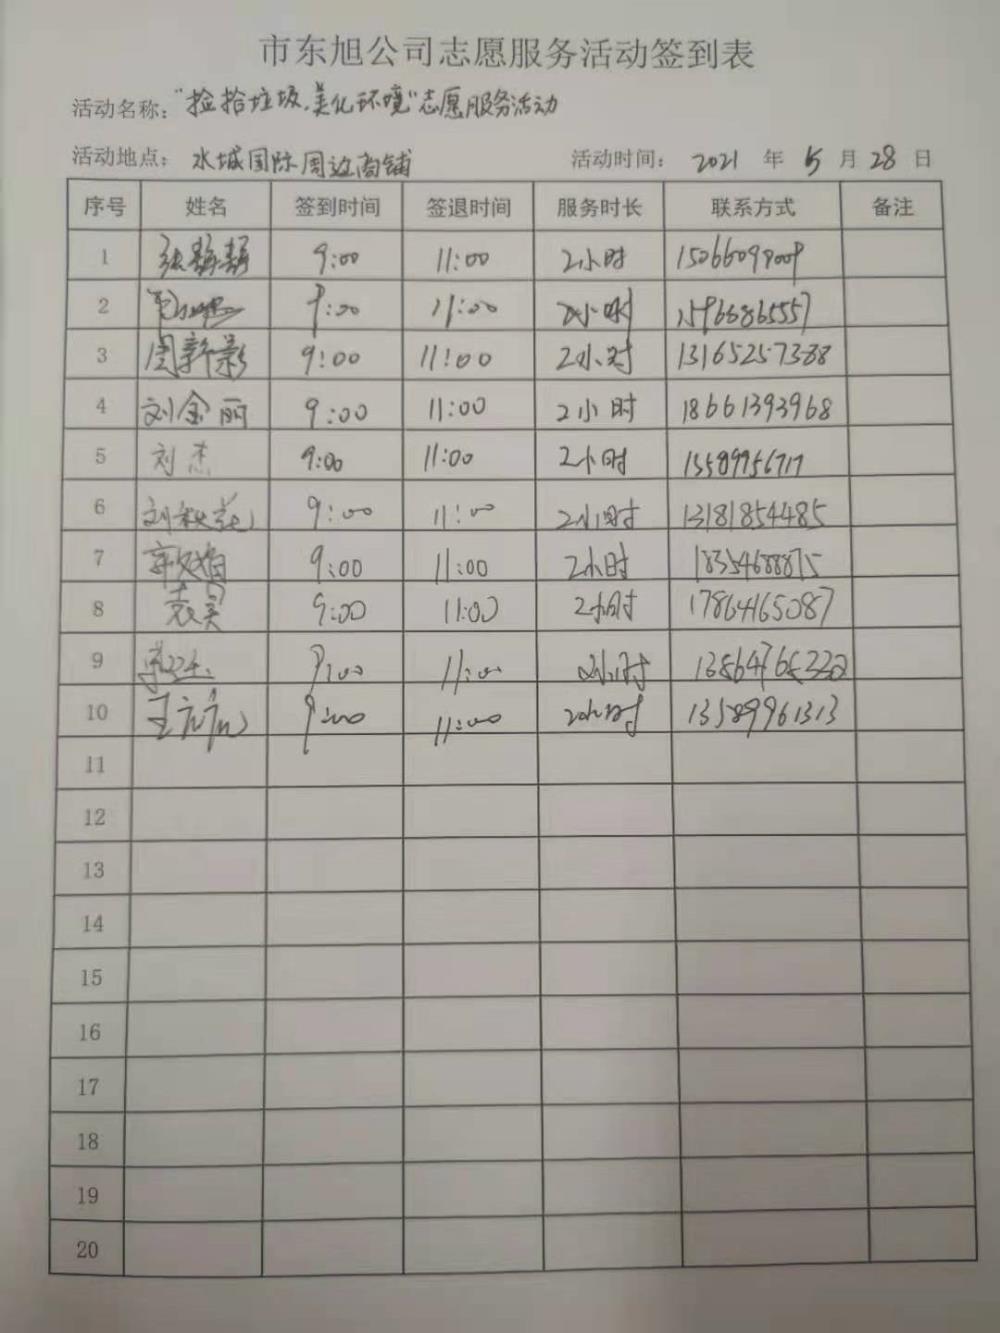 市东旭公司志愿服务活动签到表
活动名称："捡拾垃圾，美化环境"志愿服务活动
活动地点：水城国际周边商铺 活动时间：2021 年 5 月 28 日
序号 姓名 签到时间 签退时间 服务时长 联系方式 备注
1 张静静 9:00 11:00 2小时
2 9:00 11:00 2小时
3 周新影 9:00 11:00 2小时 13165257388
4 刘金丽 9:00 11:00 2小时 18661393968
5 刘杰 9:00 11:00 2小时
6 刘秋花 9:00 11:00 2小时 13181854485
7 9:00 11:00 2小时 18354688875
8 袁昊 9:00 11:00 2小时 17864165087
9 9:00 11:00 2小时
10 9:00 11:00 2小时 13589961313
11
12
13
14
15
16
17
18
19
20